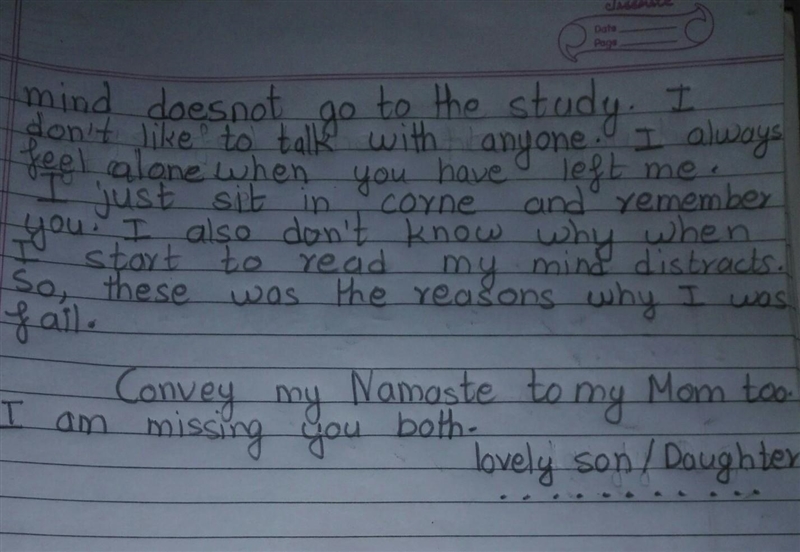 Classmate
Date
Page
mind doesnot go to the study. I
don't like to talk with anyone. I always
feel alone when you have left me.
I just sit in corne and remember
you. I also don't know why when
I start to read my mind distracts.
So, these was the reasons why I was
fail.
Convey my Namaste to my Mom too.
I am missing you both.
lovely son/Daughter
...........